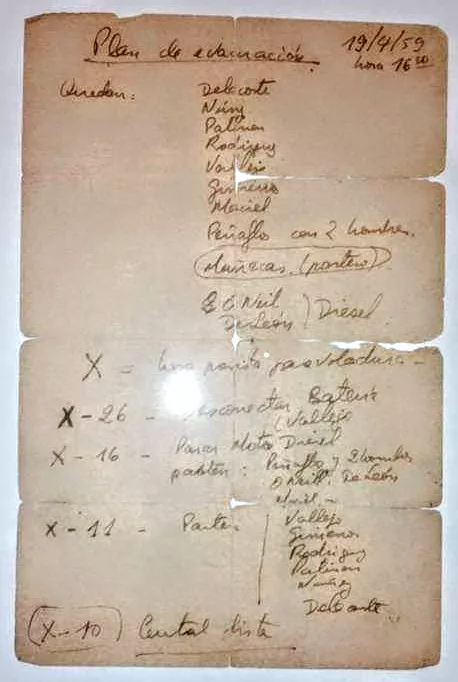 Plan de evacuación. 19/4/59
hora 16 00
Quedan: Delacoste
Patiman
Rodriguez
Vallejo
Gimeno
Maciel
Peñaflo con 2 hombres.
(portero)
O Neil
De León ) Diesel
X - hora para voladura -
X - 26 - Desconectar Batería
(Vallejo
X - 16 - Parar Motor Diesel
parten: Peñaflo y 2 hombres
O Neill. De León
X - 11 - Parten Vallejo
Gimeno
Rodriguez
Patiman
Nuñez
Delacoste
(X - 10) Central lista